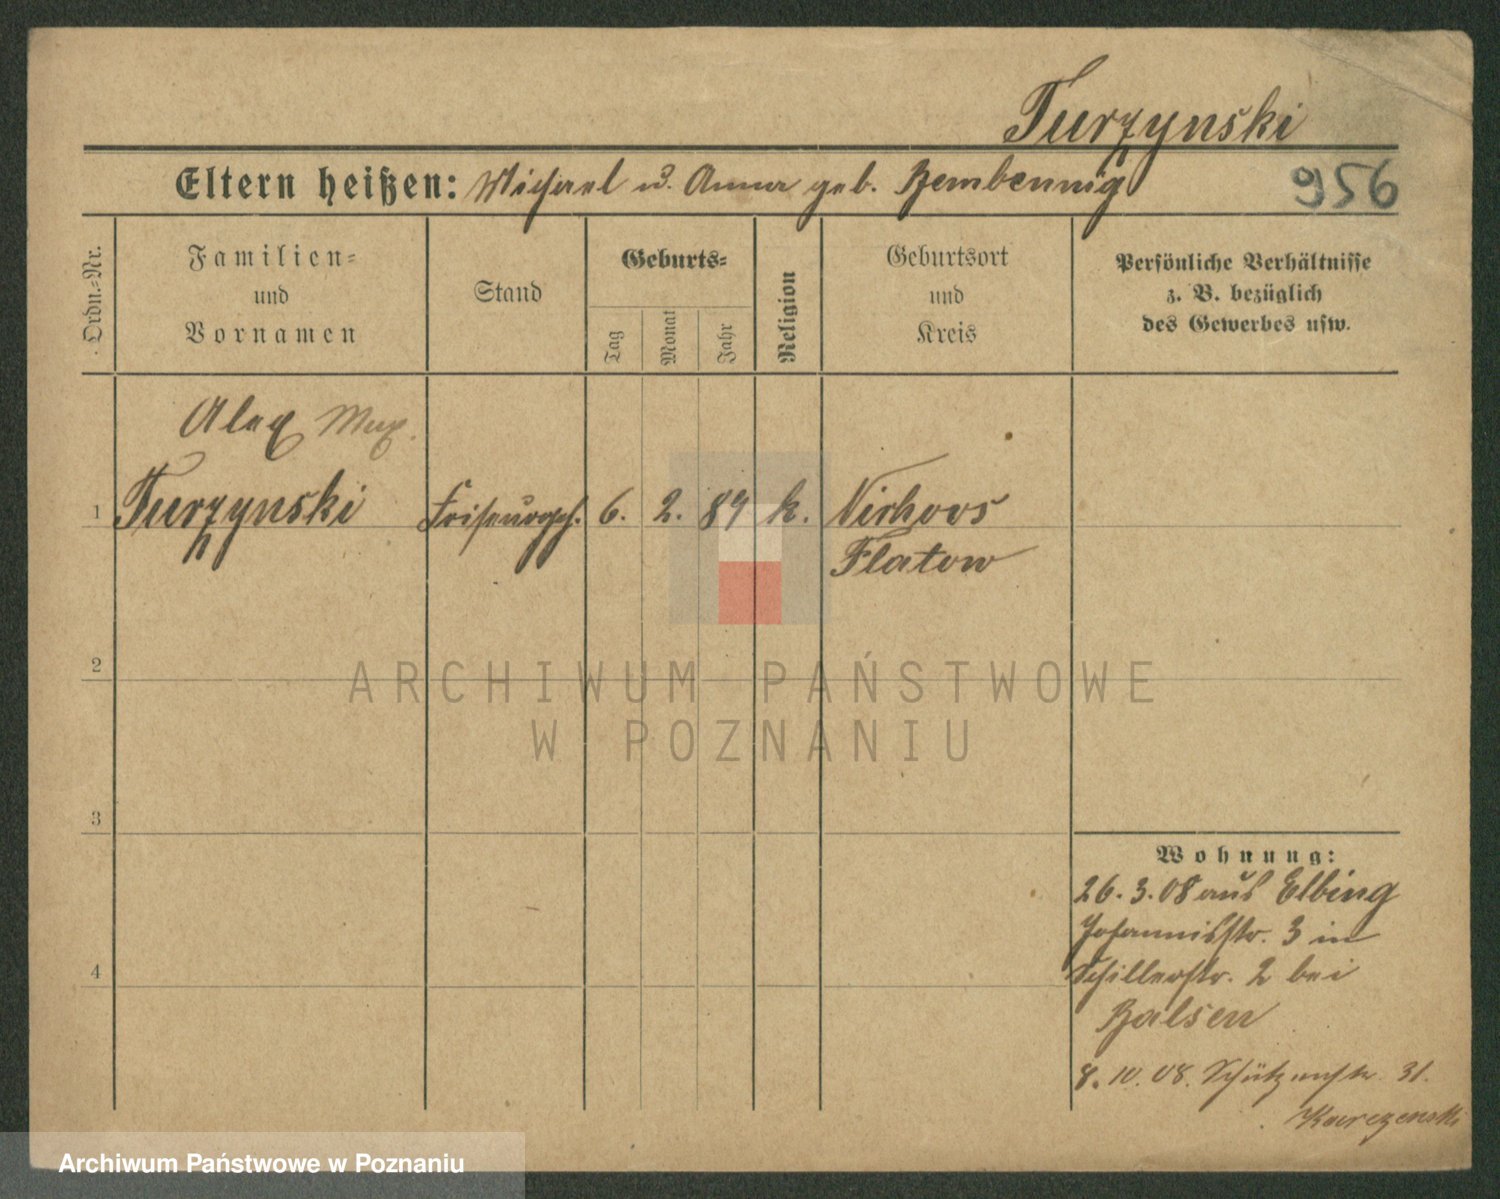 Turzynski
Eltern heißen: Michael u. Anna geb. Zembennig
956
Ordn.-Nr.
Familien-
und
Vornamen
Stand
Geburts-
Tag
Monat
Jahr
Religion
Geburtsort
und
Kreis
Persönliche Verhältnisse
z. B. bezüglich
des Gewerbes usw.
Alex Max.
1 Turzynski Friseurgeh. 6. 2. 89 k.
Flatow
2
3
4
Wohnung:
26. 3. 08 aus Elbing
Johannisstr. 3 in
Schillerstr. 2 bei
Balsen
8. 10. 08. Schützenstr. 31.
ARCHIWUM PAŃSTWOWE
W POZNANIU
Archiwum Państwowe w Poznaniu